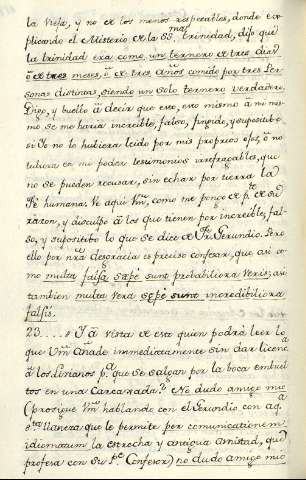 la Vieja, y no de los menos respetables, donde ex-
plicando el Misterio de la SS.ma trinidad, dijo que
la trinidad era como un ternero de tres dias
ò de tres meses, ò de tres años comido por tres Per-
sonas distintas, siendo un solo ternero verdadero,
Digo, y buelbo à decir que esto, esto mismo à mi mis-
mo se me haria increible, falso, fingido, y supositicio
si Yo no lo hubiera leido por mis proprios ojos, ò no
tubiera en mi poder testimonios irrefragables, que
no se pueden recusar, sin echar por tierra la
Fè humana. Ve aqui Vm, como me pongo de p.te de su
razon, y disculpo à los que tienen por increible, fal-
so, y supositicio lo que se dice de Fr. Gerundio. Pero
ello por nra desgracia es preciso confesar, que asi co-
mo multa falsa sæpè sunt probabiliora veris; asi
tambien multa vera sæpè sunt incredibiliora
falsis.
23.... Y à vista de esto quien podrà leer lo
que Vm añade immediatamente sin dar licencia
à los Livianos p.a que se salgan por la boca embuel-
tos en una Carcaxada? No dudo amigo mio
(prosigue Vm hablando con el Gerundio con aq.a
llaneza que le permite per comunicationem
idiomatum la estrecha y antigua amistad, que
profesa con su P.e Confesor) no dudo amigo mio